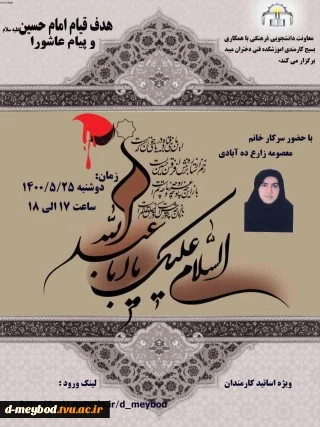 معاونت دانشجویی فرهنگی با همکاری
بسیج کارمندی اموزشکده فنی دختران میبد
برگزار می کند:
هدف قیام امام حسین علیه سلام
و پیام عاشورا
با حضور سرکار خانم
معصومه زارع ده آبادی
زمان:
دوشنبه ۱۴۰۰/۵/۲۵
ساعت ۱۷ الی ۱۸
السلام علیک یا ابا عبد الله
ویژه اساتید کارمندان
لینک ورود :
d-meybod.tvu.ac.ir
ir/d_meybod